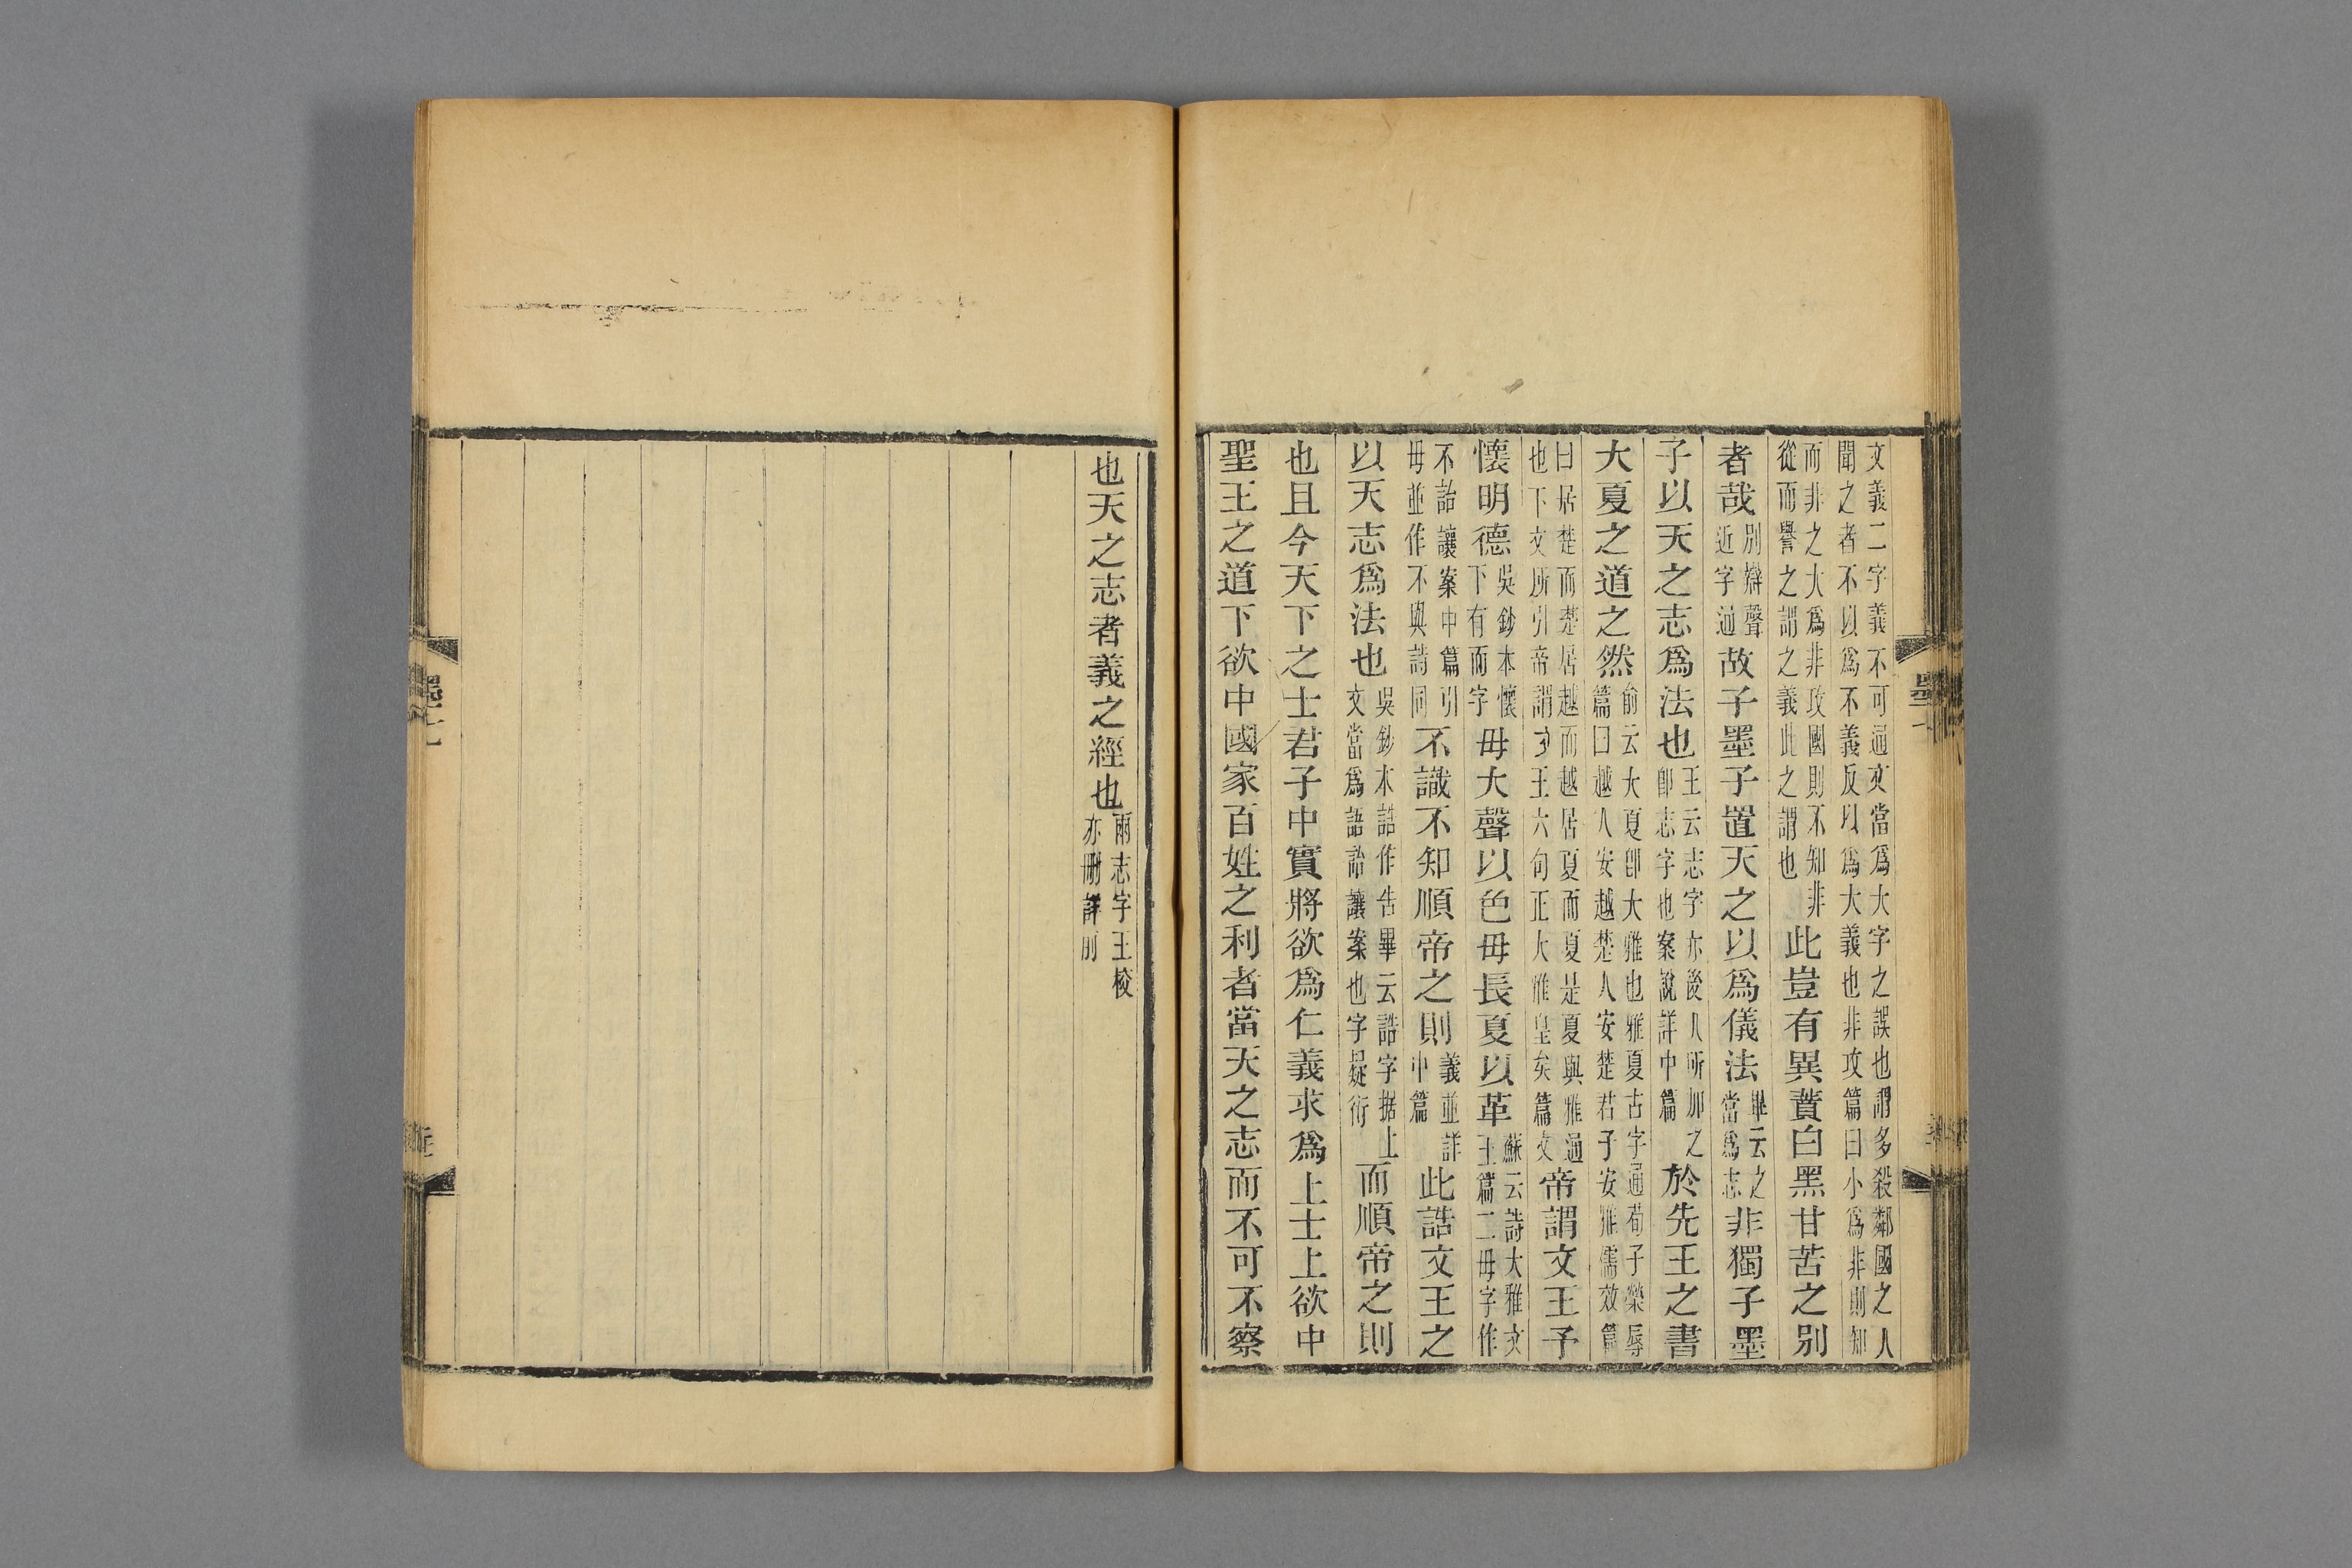 文義二字義不可通文當爲大字之誤也謂多殺鄰國之人
聞之者不以爲不義反以爲大義也非攻篇曰小爲非則知
而非之大爲非攻國則不知非
從而譽之謂之義此之謂也
此豈有異蕡白黑甘苦之別
者哉
別辯聲
近字通
故子墨子置天之以爲儀法
畢云之
當爲志
非獨子墨
子以天之志爲法也
王云志字亦後人所加之
卽志字也案說詳中篇
於先王之書
大夏之道之然
俞云大夏卽大雅也雅夏古字通荀子榮辱
篇曰越人安越楚人安楚君子安雅儒效篇
曰居楚而楚居越而越居夏而夏是夏與雅通
也下文所引帝謂文王六句正大雅皇矣篇文
帝謂文王予
懷明德
吳鈔本懷
下有而字
毋大聲以色毋長夏以革
蘇云詩大雅文
王篇二毋字作
不詒讓案中篇引
毋並作不與詩同
不識不知順帝之則
義並詳
中篇
此誥文王之
以天志爲法也
吳鈔本誥作告畢云誥字据上
文當爲語詒讓案也字疑衍
而順帝之則
也且今天下之士君子中實將欲爲仁義求爲上士上欲中
聖王之道下欲中國家百姓之利者當天之志而不可不察
也天之志者義之經也
兩志字王校
亦刪詳前